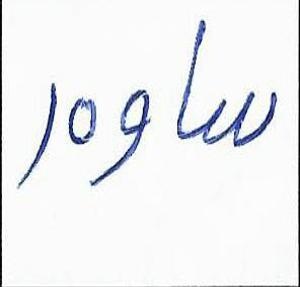 ساوەر